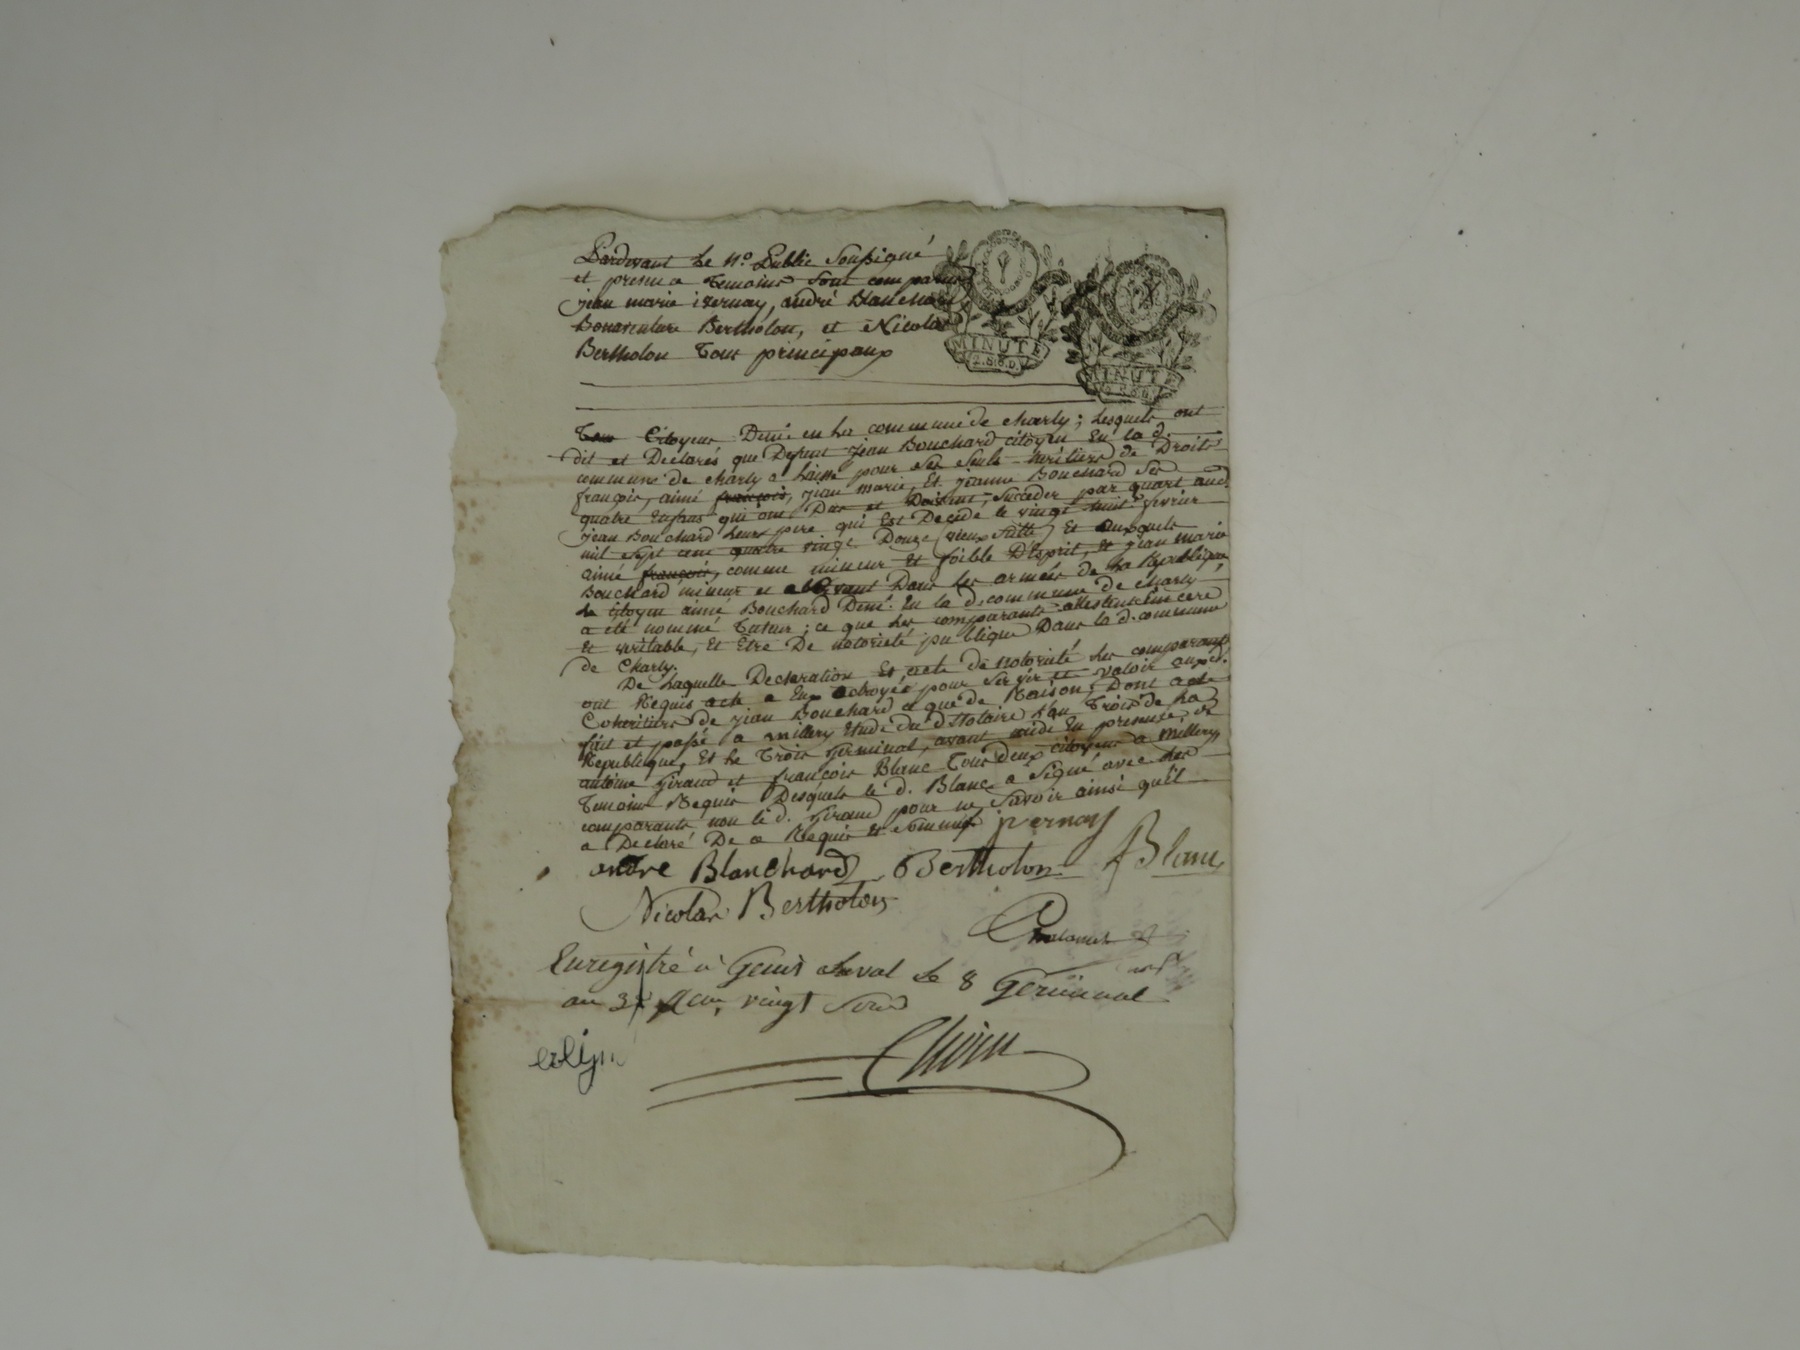 Pardevant Le No. Public Soussigné
et presence Temoins Sont comparus
jean marie izernay, andré Blanchard
Bonaventure Bertholon, et Nicolas
Bertholon Tous principaux
MINUTE
MINUTE
Tous Citoyens Demt. en La commune de charly; Lesquels ont
dit et Declarés que Defunt Jean Bouchard citoyen En la d.
commune de charly a Laissé pour Ses Seuls heritiers de Droits
françois, aimé françois, jean marie, Et jeanne Bouchard Ses
quatre Enfans qui ont Dus et Doivent Succeder par quart aud.
jean Bouchard Leur pere qui Est Decedé le vingt huit fevrier
mil Sept cent quatre vingt Douze (vieux Stille) Et auxquels
aimé françois, comme mineur et foible D'Esprit, et jean marie
Bouchard mineur et Servant Dans les armées de La Republique
Le Citoyen aimé Bouchard Demt. En la d. commune de charly
a été nommé Tuteur; ce que Les comparants attestent Sincere
Et veritable, Et Etre De notorieté publique Dans la d. commune
de Charly.
De Laquelle Declaration Et acte de notorieté Les comparants
ont Requis acte a Eux octroyée pour Servir et valoir auxd.
Coheritiers de jean Bouchard a que de Raison, Dont acte
fait et passé a millery Etude du d. Notaire L'an Trois de La
Republique, Et Le Trois Germinal, avant midi En presence de
antoine Giraud et françois Blanc Tous Deux citoyens a Millery
Temoins Requis Desquels le d. Blanc a Signé avec Les
comparants non le d. Giraud pour ne Savoir ainsi qu'il
a Declaré De ce Requis Et Sommé jzernay
andre Blanchard Bertholon fBlanc
Nicolas Bertholon
Enregistré à Genis Laval Le 8 Germinal
an 3e Reçu vingt Sous